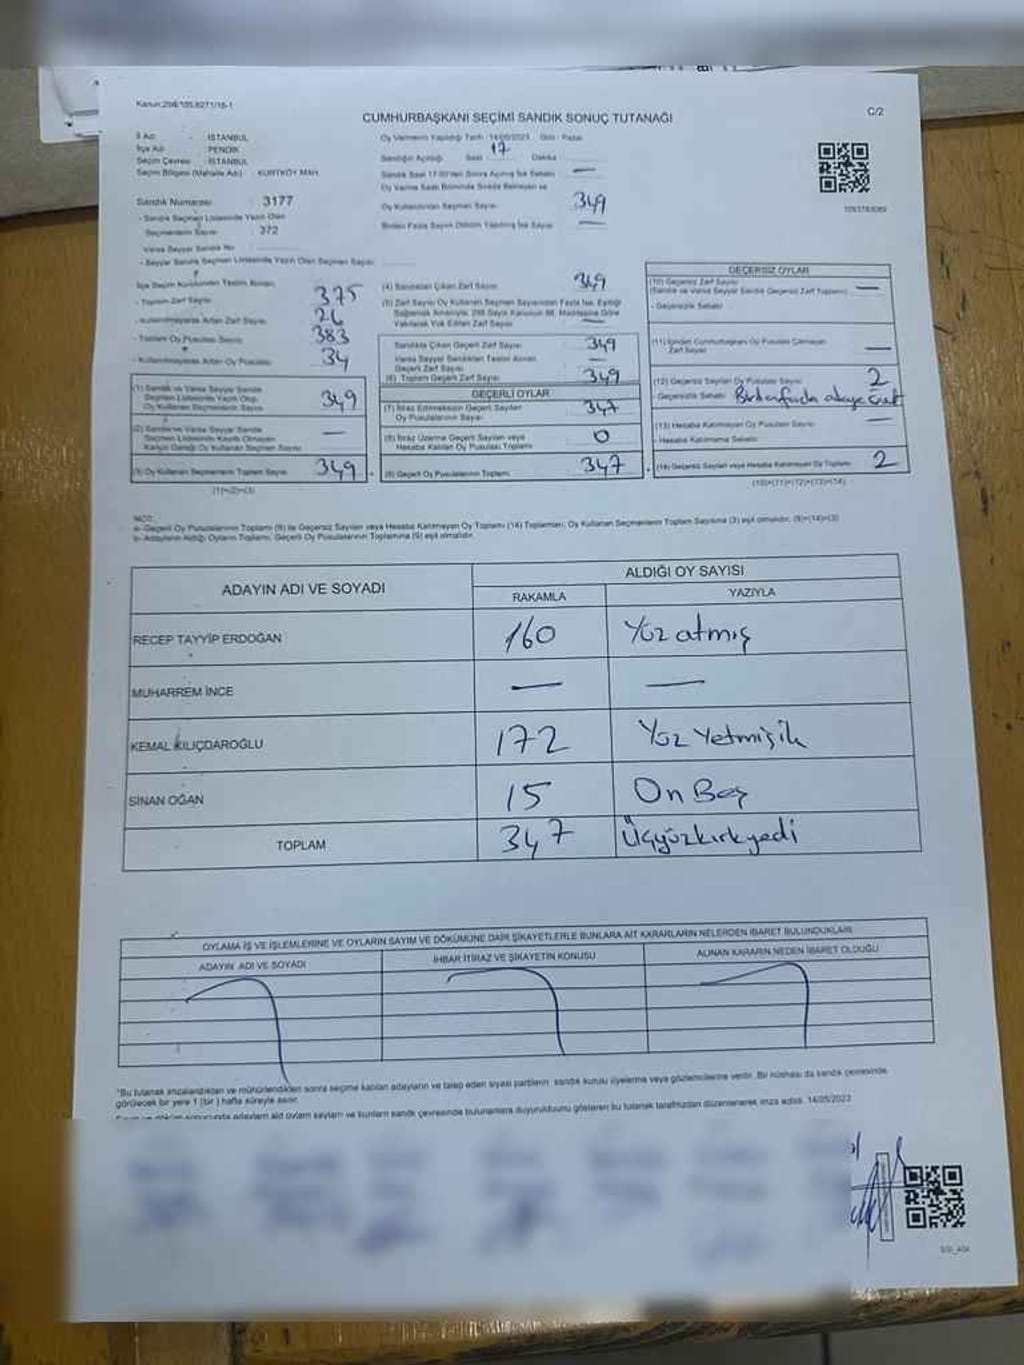 Kanun:298/105,6271/16-1
C/2
CUMHURBAŞKANI SEÇİMİ SANDIK SONUÇ TUTANAĞI
İl Adı : İSTANBUL
İlçe Adı : PENDİK
Seçim Çevresi : İSTANBUL
Seçim Bölgesi (Mahalle Adı) : KURTKÖY MAH.
Sandık Numarası : 3177
- Sandık Seçmen Listesinde Yazılı Olan
Seçmenlerin Sayısı : 372
Varsa Seyyar Sandık No
- Seyyar Sandık Seçmen Listesinde Yazılı Olan Seçmen Sayısı
Oy Vermenin Yapıldığı Tarih : 14/05/2023 Gün : Pazar
Sandığın Açıldığı Saat 17 Dakika
Oy Kullandırılan Seçmen Sayısı 349
İlçe Seçim Kurulundan Teslim Alınan
- Toplam Zarf Sayısı 375
- Kullanılmayarak Artan Zarf Sayısı 26
- Toplam Oy Pusulası Sayısı 383
- Kullanılmayarak Artan Oy Pusulası 34
(1) Sandık ve Varsa Seyyar Sandık
Seçmen Listesinde Yazılı Olup
Oy Kullanan Seçmenlerin Sayısı 349
(2) Sandık ve Varsa Seyyar Sandık
Seçmen Listesinde Kayıtlı Olmayan
Kanun Gereği Oy Kullanan Seçmen Sayısı —
(3) Oy Kullanan Seçmenlerin Toplam Sayısı 349
(1)+(2)=(3)
(4) Sandıktan Çıkan Zarf Sayısı 349
(5) Zarf Sayısı Oy Kullanan Seçmen Sayısından Fazla İse, Eşitliği
Sağlamak Amacıyla, 298 Sayılı Kanunun 98. Maddesine Göre
Yakılarak Yok Edilen Zarf Sayısı —
Sandıkta Çıkan Geçerli Zarf Sayısı 349
Varsa Seyyar Sandıktan Teslim Alınan
Geçerli Zarf Sayısı —
(6) Toplam Geçerli Zarf Sayısı 349
GEÇERLİ OYLAR
(7) İtiraz Edilmeksizin Geçerli Sayılan
Oy Pusulalarının Sayısı 347
(8) İtiraz Üzerine Geçerli Sayılan veya
Hesaba Katılan Oy Pusulası Toplamı 0
(9) Geçerli Oy Pusulalarının Toplamı 347
GEÇERSİZ OYLAR
(10) Geçersiz Zarf Sayısı
(Sandık ve Varsa Seyyar Sandık Geçersiz Zarf Toplamı) —
- Geçersizlik Sebebi
(11) İçinden Cumhurbaşkanı Oy Pusulası Çıkmayan
Zarf Sayısı —
(12) Geçersiz Sayılan Oy Pusulası Sayısı 2
Geçersizlik Sebebi
(13) Hesaba Katılmayan Oy Pusulası Sayısı —
- Hesaba Katılmama Sebebi
(14) Geçersiz Sayılan veya Hesaba Katılmayan Oy Toplamı 2
(10)+(11)+(12)+(13)=(14)
NOT:
a- Geçerli Oy Pusulalarının Toplamı (9) ile Geçersiz Sayılan veya Hesaba Katılmayan Oy Toplamı (14) Toplamları, Oy Kullanan Seçmenlerin Toplam Sayısına (3) eşit olmalıdır. (9)+(14)=(3)
b- Adayların Aldığı Oyların Toplamı, Geçerli Oy Pusulalarının Toplamına (9) eşit olmalıdır.
ADAYIN ADI VE SOYADI
ALDIĞI OY SAYISI
RAKAMLA YAZIYLA
RECEP TAYYİP ERDOĞAN 160 Yüz atmış
MUHARREM İNCE — —
KEMAL KILIÇDAROĞLU 172 Yüz Yetmişik
SİNAN OĞAN 15 On Beş
TOPLAM 347 Üçyüzkırkyedi
OYLAMA İŞ VE İŞLEMLERİNE VE OYLARIN SAYIM VE DÖKÜMÜNE DAİR ŞİKAYETLERLE BUNLARA AİT KARARLARIN NELERDEN İBARET BULUNDUKLARI
ADAYIN ADI VE SOYADI İHBAR İTİRAZ VE ŞİKAYETİN KONUSU ALINAN KARARIN NEDEN İBARET OLDUĞU
*Bu tutanak imzalandıktan ve mühürlendikten sonra seçime katılan adayların ve talep eden siyasi partilerin sandık kurulu üyelerine veya gözlemcilerine verilir. Bir nüshası da sandık çevresinde
görülecek bir yere 1 (bir) hafta süreyle asılır.